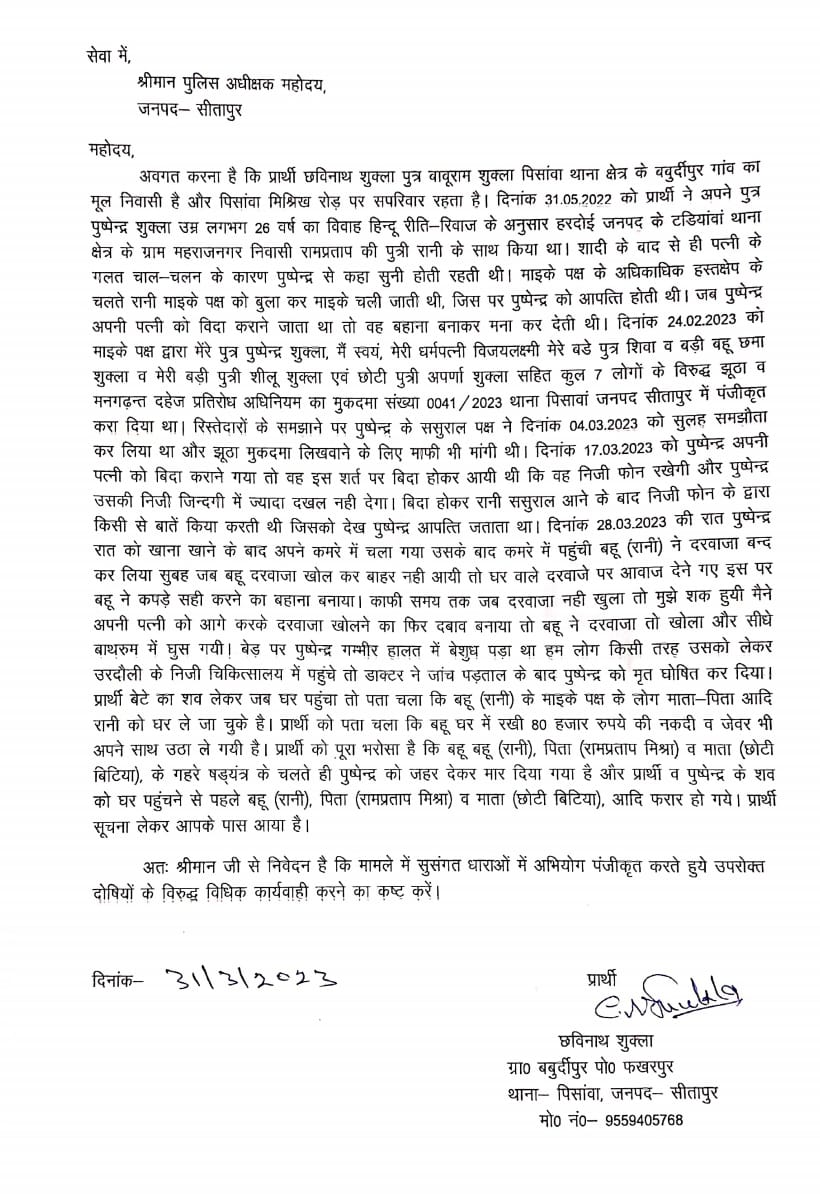 सेवा में,
श्रीमान पुलिस अधीक्षक महोदय,
जनपद– सीतापुर
महोदय,
अवगत करना है कि प्रार्थी छविनाथ शुक्ला पुत्र बावूराम शुक्ला पिसांवा थाना क्षेत्र के बबुर्दीपुर गांव का
मूल निवासी है और पिसांवा मिश्रिख रोड़ पर सपरिवार रहता है। दिनांक 31.05.2022 को प्रार्थी ने अपने पुत्र
पुष्पेन्द्र शुक्ला उम्र लगभग 26 वर्ष का विवाह हिन्दू रीति–रिवाज के अनुसार हरदोई जनपद के टडियांवां थाना
क्षेत्र के ग्राम महराजनगर निवासी रामप्रताप की पुत्री रानी के साथ किया था। शादी के बाद से ही पत्नी के
गलत चाल–चलन के कारण पुष्पेन्द्र से कहा सुनी होती रहती थी। माइके पक्ष के अधिकाधिक हस्तक्षेप के
चलते रानी माइके पक्ष को बुला कर माइके चली जाती थी, जिस पर पुष्पेन्द्र को आपत्ति होती थी। जब पुष्पेन्द्र
अपनी पत्नी को विदा कराने जाता था तो वह बहाना बनाकर मना कर देती थी। दिनांक 24.02.2023 को
माइके पक्ष द्वारा मेंरे पुत्र पुष्पेन्द्र शुक्ला, मैं स्वयं, मेरी धर्मपत्नी विजयलक्ष्मी मेरे बडे पुत्र शिवा व बड़ी बहू छमा
शुक्ला व मेरी बड़ी पुत्री शीलू शुक्ला एवं छोटी पुत्री अपर्णा शुक्ला सहित कुल 7 लोगों के विरुद्ध झूठा व
मनगढ़न्त दहेज प्रतिरोध अधिनियम का मुकदमा संख्या 0041/2023 थाना पिसावां जनपद सीतापुर में पंजीकृत
करा दिया था। रिस्तेदारों के समझाने पर पुष्पेन्द्र के ससुराल पक्ष ने दिनांक 04.03.2023 को सुलह समझौता
कर लिया था और झूठा मुकदमा लिखवाने के लिए माफी भी मांगी थी। दिनांक 17.03.2023 को पुष्पेन्द्र अपनी
पत्नी को बिदा कराने गया तो वह इस शर्त पर बिदा होकर आयी थी कि वह निजी फोन रखेगी और पुष्पेन्द्र
उसकी निजी जिन्दगी में ज्यादा दखल नही देगा। बिदा होकर रानी ससुराल आने के बाद निजी फोन के द्वारा
किसी से बातें किया करती थी जिसको देख पुष्पेन्द्र आपत्ति जताता था। दिनांक 28.03.2023 की रात पुष्पेन्द्र
रात को खाना खाने के बाद अपने कमरे में चला गया उसके बाद कमरे में पहुंची बहू (रानी) ने दरवाजा बन्द
कर लिया सुबह जब बहू दरवाजा खोल कर बाहर नही आयी तो घर वाले दरवाजे पर आवाज देने गए इस पर
बहू ने कपड़े सही करने का बहाना बनाया। काफी समय तक जब दरवाजा नही खुला तो मुझे शक हुयी मैने
अपनी पत्नी को आगे करके दरवाजा खोलने का फिर दबाव बनाया तो बहू ने दरवाजा तो खोला और सीधे
बाथरुम में घुस गयी। बेड़ पर पुष्पेन्द्र गम्मीर हालत में बेशुध पड़ा था हम लोग किसी तरह उसको लेकर
उरदौली के निजी चिकित्सालय में पहुंचे तो डाक्टर ने जांच पड़ताल के बाद पुष्पेन्द्र को मृत घोषित कर दिया।
प्रार्थी बेटे का शव लेकर जब घर पहुंचा तो पता चला कि बहू (रानी) के माइके पक्ष के लोग माता–पिता आदि
रानी को घर ले जा चुके है। प्रार्थी को पता चला कि बहू घर में रखी 80 हजार रुपये की नकदी व जेवर भी
अपने साथ उठा ले गयी है। प्रार्थी को पूरा भरोसा है कि बहू बहू (रानी), पिता (रामप्रताप मिश्रा) व माता (छोटी
बिटिया), के गहरे षड़यंत्र के चलते ही पुष्पेन्द्र को जहर देकर मार दिया गया है और प्रार्थी व पुष्पेन्द्र के शव
को घर पहुंचने से पहले बहू (रानी), पिता (रामप्रताप मिश्रा) व माता (छोटी बिटिया), आदि फरार हो गये। प्रार्थी
सूचना लेकर आपके पास आया है।
अतः श्रीमान जी से निवेदन है कि मामले में सुसंगत धाराओं में अभियोग पंजीकृत करते हुये उपरोक्त
दोषियों के विरुद्ध विधिक कार्यवाही करने का कष्ट करें।
दिनांक– 31/3/2023
प्रार्थी
C.N Shukla
छविनाथ शुक्ला
ग्रा0 बबुर्दीपुर पो0 फखरपुर
थाना– पिसांवा, जनपद– सीतापुर
मो0 नं0– 9559405768